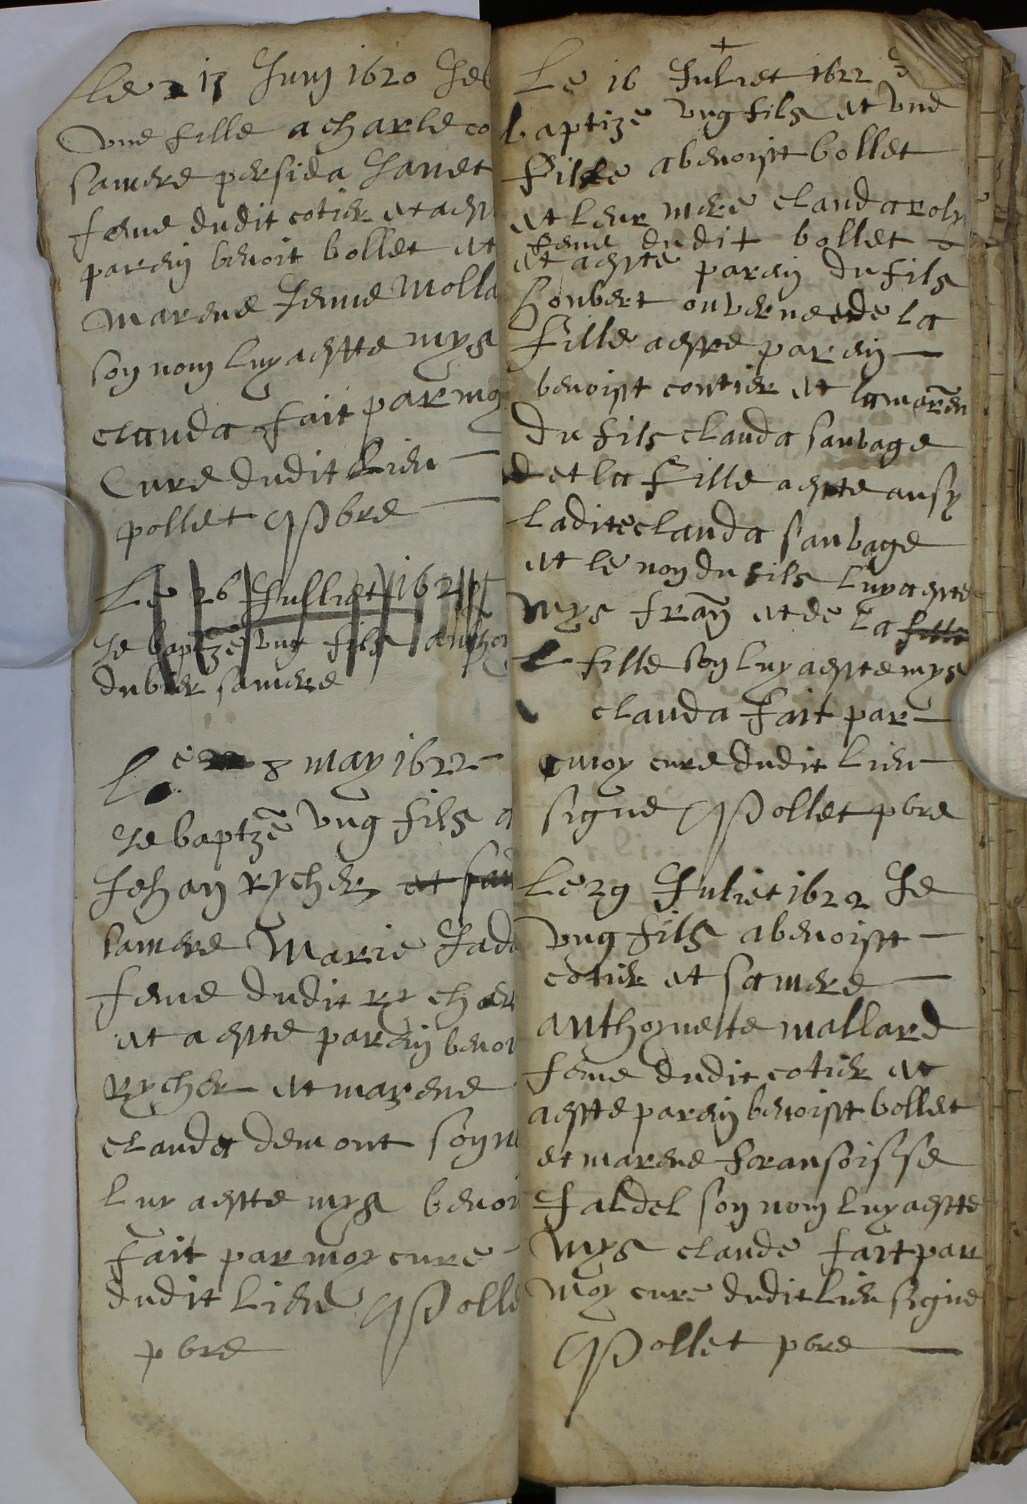 Le 17 Juin 1620 Je b
une fille a charle co
sa mere persida Janet
feme dudit cotier et a este
parain benoit bollet et
marene Jeane Molla
son nom luy a este mys
clauda fait par moy
Cure dudit Lieu
pollet pbre
Le 26 Julliet 162
Je baptzé ung fils anthoi
dubier sa mere
Le 8 may 1622
Je baptzé ung fils a
Jehan rycher et sa
sa mere Marie Jad
feme dudit rycher
et a este parain benoi
Rycher et marene
clauda demont son n
luy a este mys benoi
fait par moy cure
dudit Lieu Polle
pbre
Le 16 Juliet 1622 Je
baptizé ung fils et une
fille a benoist bollet
et leur mere clauda
feme dudit bollet
et a este parain du fils
houbert et de la
fille a este parain
benoist cottier et la maren
du fils clauda sauvage
et la fille a este ausy
ladite clauda sauvage
et le nom du fils luy a este
mys fran et de la fille
fille son luy a este mys
clauda fait par
moy cure dudit Lieu
signe Pollet pbre
Le 29 Juliet 1622 Je
ung fils a benoist
cotier et sa mere
anthoynette mallard
feme dudit cotier et
a este parain benoist bollet
et marene fransoisse
faldel son nom luy a este
mys claude fait par
moy cure dudit Lieu signe
Pollet pbre